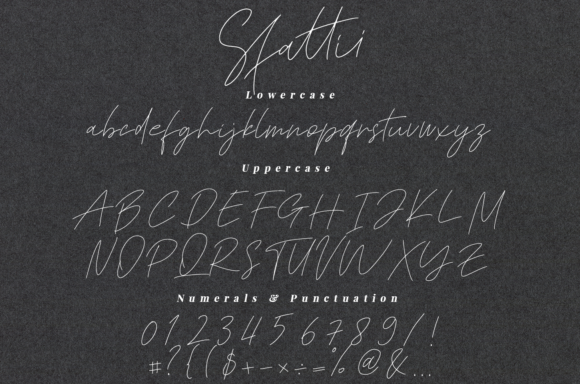 Sfattii
Lowercase
abcdefghijklmnopqrstuvwxyz
Uppercase
ABCDEFGHIJKLM
NOPQRSTUVWXYZ
Numerals & Punctuation
0123456789/!
#?{($+-×÷=%@&...